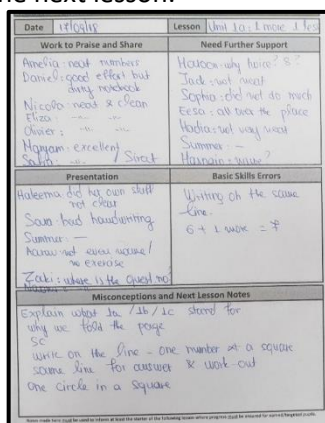 the next lesson.
Date 17/09/18 Lesson Unit 1a: 1 more 1 less
Work to Praise and Share
Amelia: neat numbers
Daniel: good effort but
dirty notebook
Nicola: neat & clean
Eliza: -"- -"-
Olivier: -"- -"-
Maryam: excellent
Safia: Sirat
Need Further Support
Haroon: why twice? 8?
Jack: not neat
Sophia: did not do much
Eesa: all over the place
Hadia: not very neat
Summer: —
Hasnain:
Presentation
Haleema did her own stuff
not clear
Sara: bad handwriting
Summer: —
not even name/
no exercise
Zaki: where is the quest no?
Basic Skills Errors
Writing on the same
line.
6 + 1 more = 7
Misconceptions and Next Lesson Notes
Explain what 1a /1b /1c stand for
why we fold the page
SC
write on the line - one number at a square
same line for answer & work-out
one circle in a square